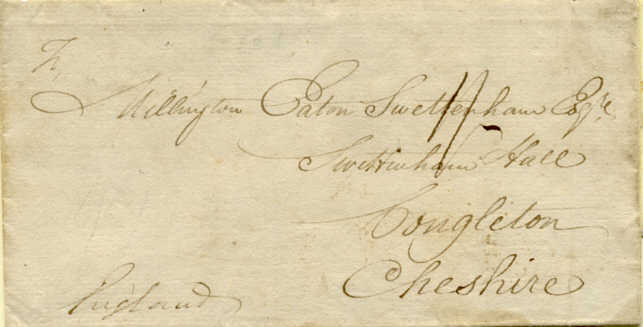 To
Millington Eaton Swettenham Esqre
Swettenham Hall
Congleton
Cheshire
England